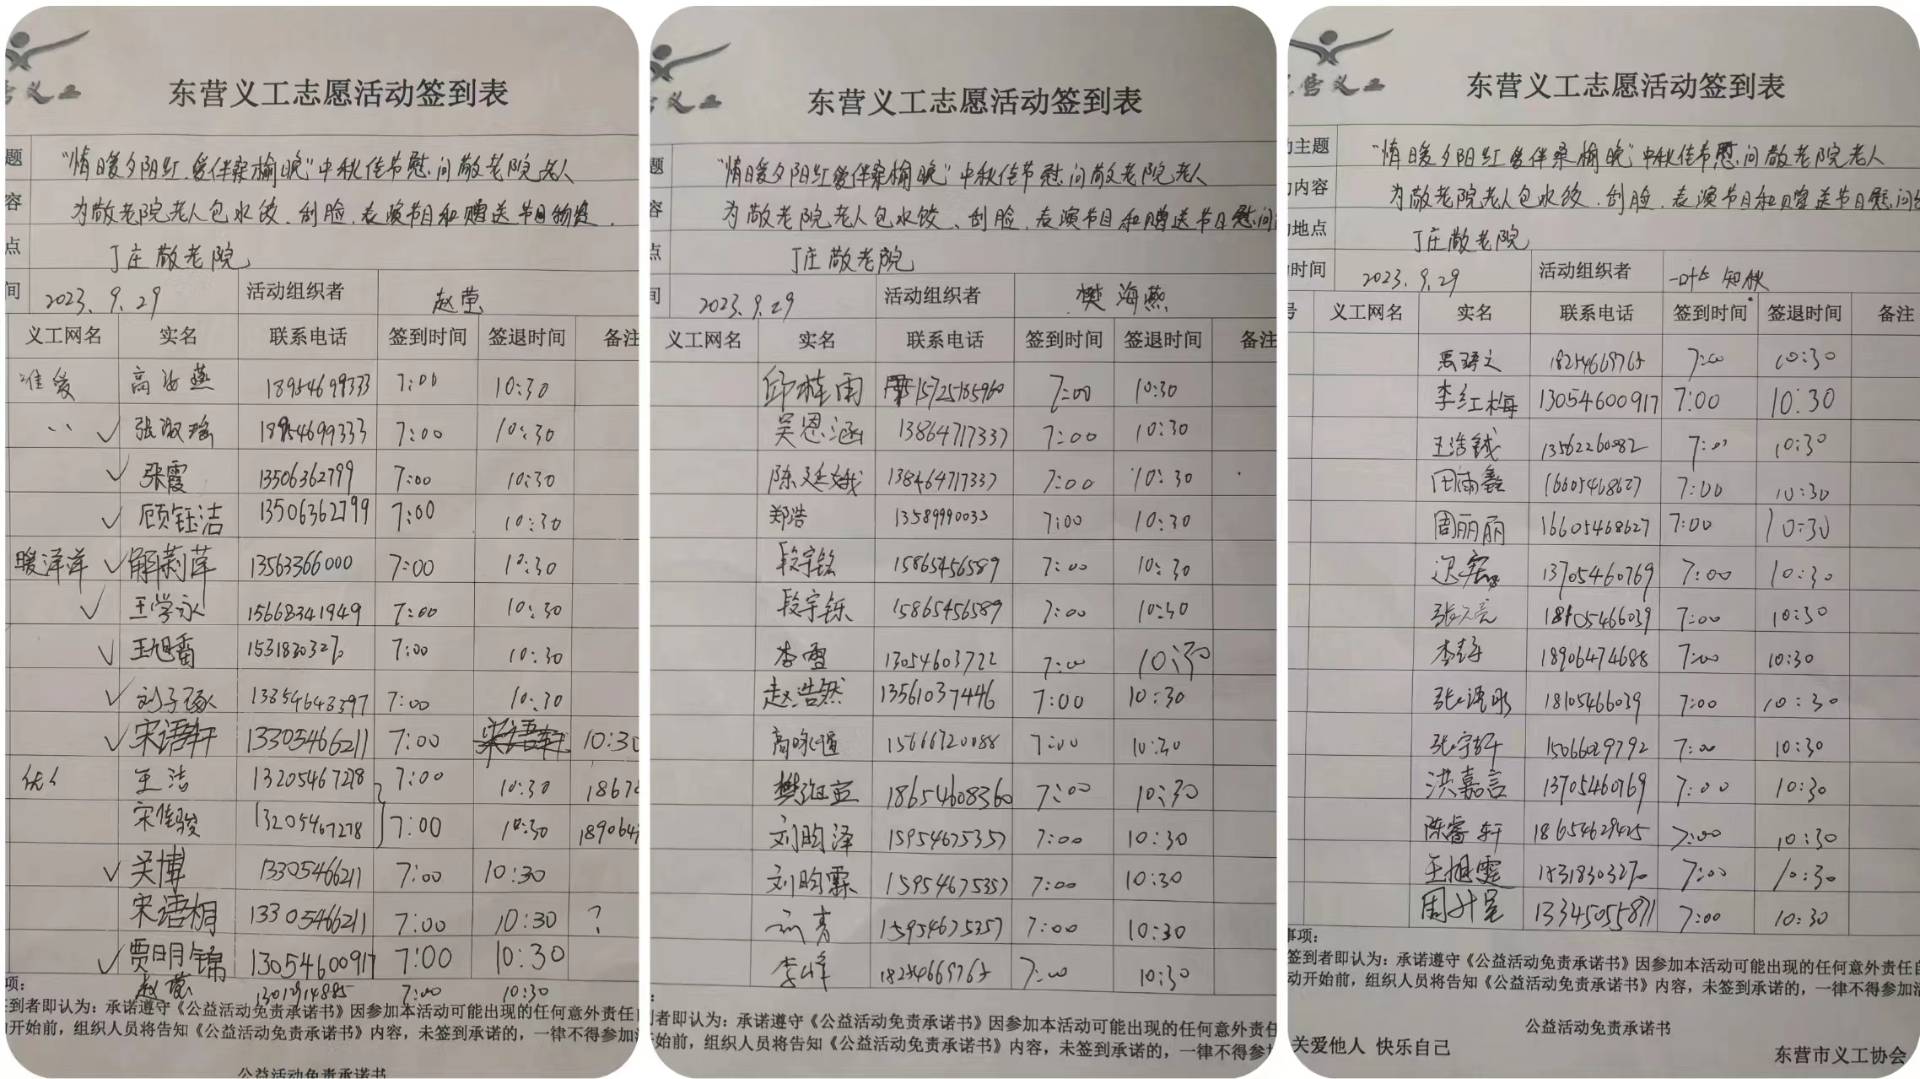 东营义工志愿活动签到表
题 "情暖夕阳红.爱伴桑榆晚"中秋佳节慰问敬老院老人
容 为敬老院老人包水饺、刮脸、表演节目和赠送节日物资.
点 丁庄敬老院
间 2023.9.29 活动组织者 赵莹
义工网名 实名 联系电话 签到时间 签退时间 备注
高海燕 18954699333 7:00 10:30
张淑瑶 18954699333 7:00 10:30
张霞 13506362799 7:00 10:30
顾钰洁 13506362799 7:00 10:30
暖洋洋 解莉萍 13563366000 7:00 10:30
王学永 15668341949 7:00 10:30
7:00 10:30
刘子琢 7:00 10:30
宋语轩 13305466211 7:00 10:30
王洁 13205467278 7:00 10:30
宋佳骏 13205467278 7:00 10:30
吴博 13305466211 7:00 10:30
宋语桐 13305466211 7:00 10:30 ?
贾明锦 13054600917 7:00 10:30
赵莹 7:00 10:30
项:
到者即认为：承诺遵守《公益活动免责承诺书》因参加本活动可能出现的任何意外责任
开始前，组织人员将告知《公益活动免责承诺书》内容，未签到承诺的，一律不得参加
公益活动免责承诺书
东营义工志愿活动签到表
题 "情暖夕阳红爱伴桑榆晚"中秋佳节慰问敬老院老人
容 为敬老院老人包水饺、刮脸、表演节目和赠送节日慰问
点 丁庄敬老院
间 2023.9.29 活动组织者 樊海燕
义工网名 实名 联系电话 签到时间 签退时间 备注
邱梓雨 15725165960 7:00 10:30
吴恩涵 13864717337 7:00 10:30
陈廷娥 7:00 10:30
郑浩 13589990033 7:00 10:30
段宇铭 15865456589 7:00 10:30
段宇铄 15865456589 7:00 10:30
李雪 13054603722 7:00 10:30
赵浩然 13561037446 7:00 10:30
高咏恒 15666720088 7:00 10:30
18654608360 7:00 10:30
刘昀泽 15954675357 7:00 10:30
刘昀霖 15954675357 7:00 10:30
15954675357 7:00 10:30
李峰 18254669765 7:00 10:30
到者即认为：承诺遵守《公益活动免责承诺书》因参加本活动可能出现的任何意外责任
始前，组织人员将告知《公益活动免责承诺书》内容，未签到承诺的，一律不得参加
东营义工
东营义工志愿活动签到表
主题 "情暖夕阳红爱伴桑榆晚"中秋佳节慰问敬老院老人
内容 为敬老院老人包水饺.刮脸.表演节目和赠送节日慰问
地点 丁庄敬老院
时间 2023.9.29 活动组织者 一叶知秋
号 义工网名 实名 联系电话 签到时间 签退时间 备注
18254669765 7:00 10:30
李红梅 13054600917 7:00 10:30
王浩铖 13562260082 7:00 10:30
田雨鑫 16605468627 7:00 10:30
周丽丽 16605468627 7:00 10:30
13705460769 7:00 10:30
18105466039 7:00 10:30
18906474688 7:00 10:30
18105466039 7:00 10:30
张宇轩 15066029792 7:00 10:30
洪嘉言 13705460769 7:00 10:30
陈睿轩 18654629425 7:00 10:30
7:00 10:30
13345055871 7:00 10:30
事项:
签到者即认为：承诺遵守《公益活动免责承诺书》因参加本活动可能出现的任何意外责任自
动开始前，组织人员将告知《公益活动免责承诺书》内容，未签到承诺的，一律不得参加活
公益活动免责承诺书
关爱他人 快乐自己
东营市义工协会